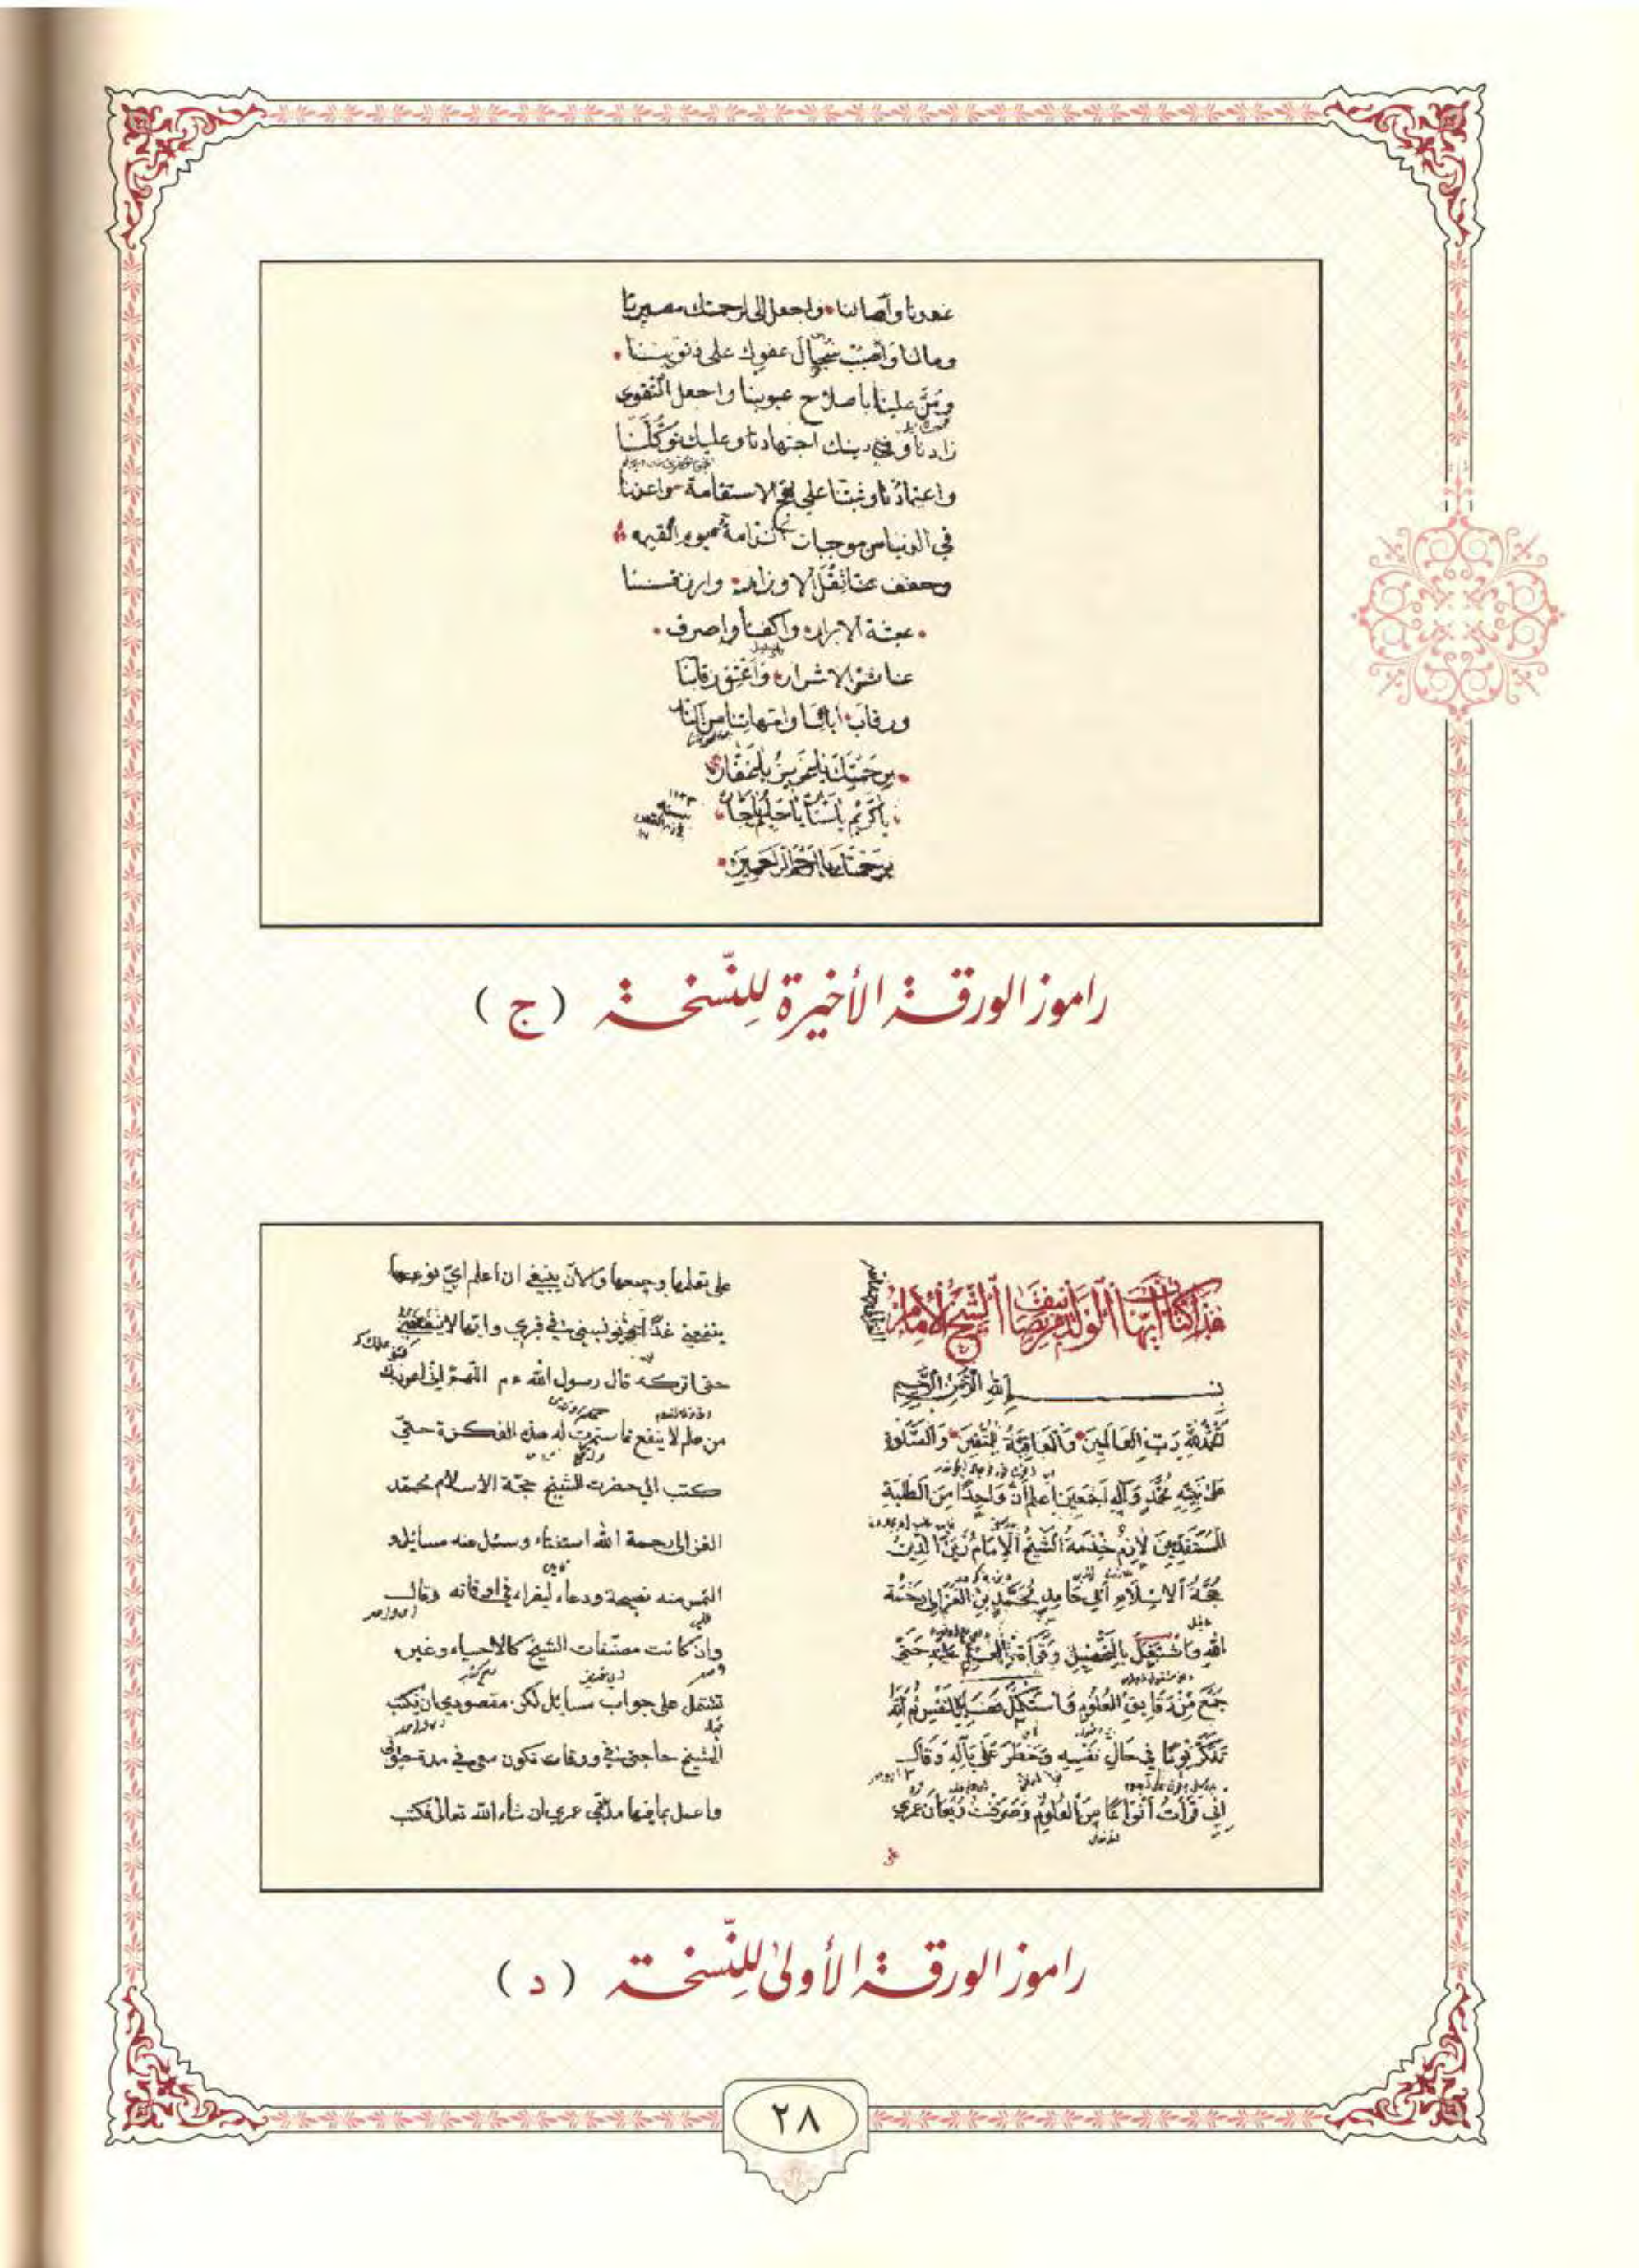 غدونا وآصالنا واجعل إلى رحمتك مصيرنا
ومالنا واصبب سجال عفوك على ذنوبنا
ومن علينا باصلاح عيوبنا واجعل التقوى
زادنا وفي دينك اجتهادنا وعليك توكلنا
واعتمادنا وثبتنا على نهج الاستقامة واعذنا
في الدنيا من موجبات الندامة يوم القيمه
وخفف عنا ثقل الاوزار وارزقنا
عيشة الابرار واكفنا واصرف
عنا شر الاشرار واعتق رقابنا
ورقاب ابائنا وامهاتنا من النار
برحمتك يا عزيز يا غفار
يا كريم يا ستار يا حليم يا جبار
برحمتك يا ارحم الراحمين
راموز الورقة الأخيرة للنسخة (ج)
هذا كتاب ايها الولد تصنيف الشيخ الامام
بسم الله الرحمن الرحيم
الحمد لله رب العالمين والعاقبة للمتقين والصلوة
على نبيه محمد وآله اجمعين اعلم ان واحدا من الطلبة
المتقدمين لازم خدمة الشيخ الامام زين الدين
حجة الاسلام ابي حامد محمد بن الغزالى رحمة
الله واشتغل بالتحصيل وقرأة العلم عليه حتى
جمع من دقايق العلوم واستكمل فضايل النفس ثم انه
تفكر يوما في حال نفسه وخطر على باله وقال
اني قرأت انواعا من العلوم وصرفت ريعان عمري
على
على تعلمها وجمعها والآن ينبغي ان اعلم اي نوعها
ينفعني غدا ويونسني في قبري وايها لا ينفعني
حتى اتركه قال رسول الله عم اللهم اني اعوذ بك
من علم لا ينفع فاستمرت له هذه الفكرة حتى
كتب الى حضرت الشيخ حجة الاسلام محمد
الغزالى رحمة الله استفتاء وسئل عنه مسائل و
التمس منه نصيحة ودعاء ليقراء في اوقاته وقال
وان كانت مصنفات الشيخ كالاحياء وغيره
تشتمل على جواب مسائل لكن مقصودي ان يكتب
الشيخ حاجتي في ورقات تكون معي في مدة حيوتي
واعمل بما فيها مدة عمري ان شاء الله تعالى فكتب
راموز الورقة الأولى للنسخة (د)
٢٨